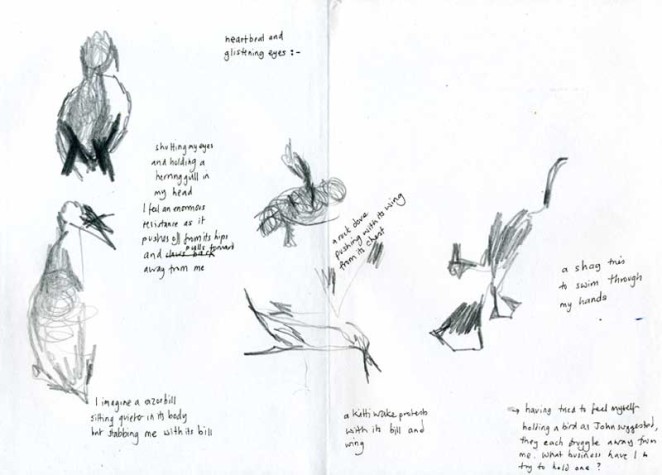 heartbeat and
glistening eyes :-
shutting my eyes
and holding a
herring gull in
my head
I feel an enormous
resistance as it
pushes off from its hips
and pulls forward
away from me
I imagine a razorbill
sitting quieter in its body
but stabbing me with its bill
a rock dove
pushing with its wing
from its chest
a kittiwake protests
with its bill and
wing
a shag tries
to swim through
my hands
having tried to feel myself
holding a bird as John suggested,
they each struggle away from
me. What business have I to
try to hold one?